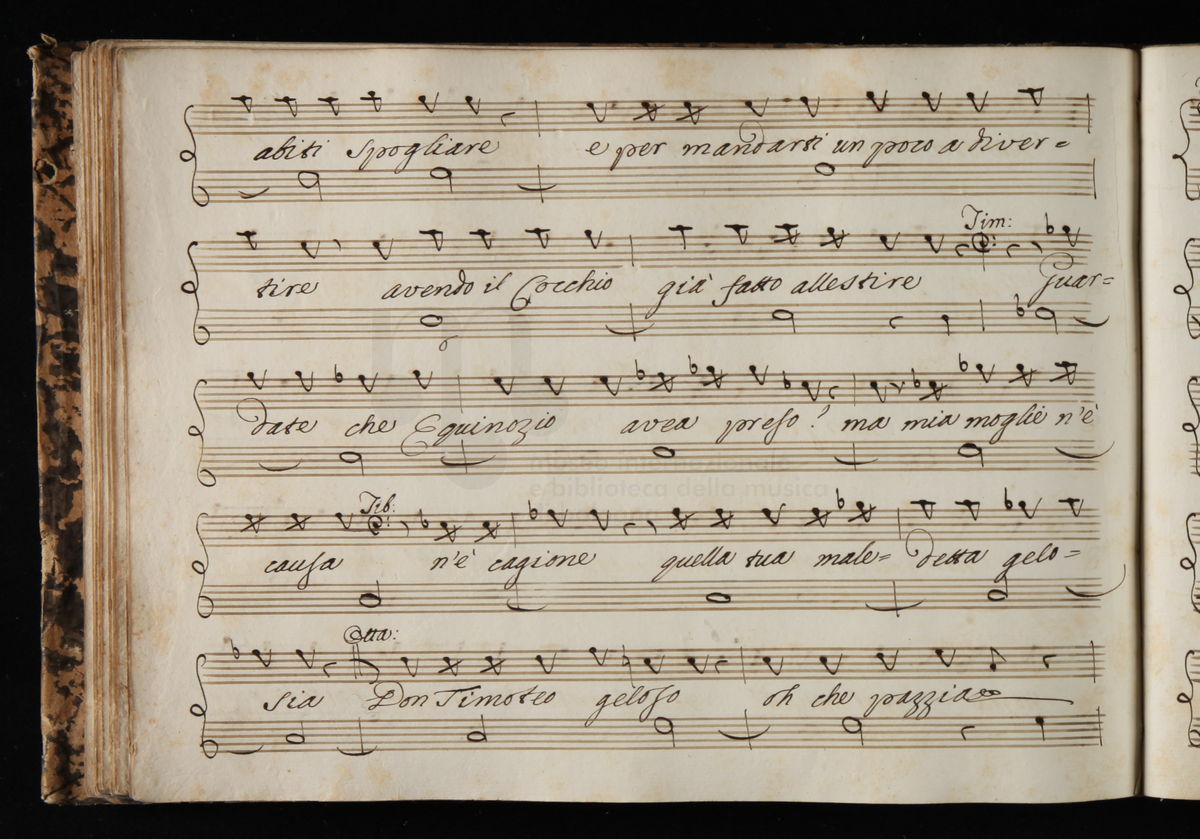 abiti Spogliare e per mandarsi un poco a diver=
Tim:
tire avendo il Cocchio già fatto allestire Guar=
date che Equinozio avea preso? ma mia moglie n'è
museo internazionale
e biblioteca della musica
Tib:
causa n'è cagione quella tua male= detta gelo=
Ctta:
sia Don Timoteo geloso oh che pazzia